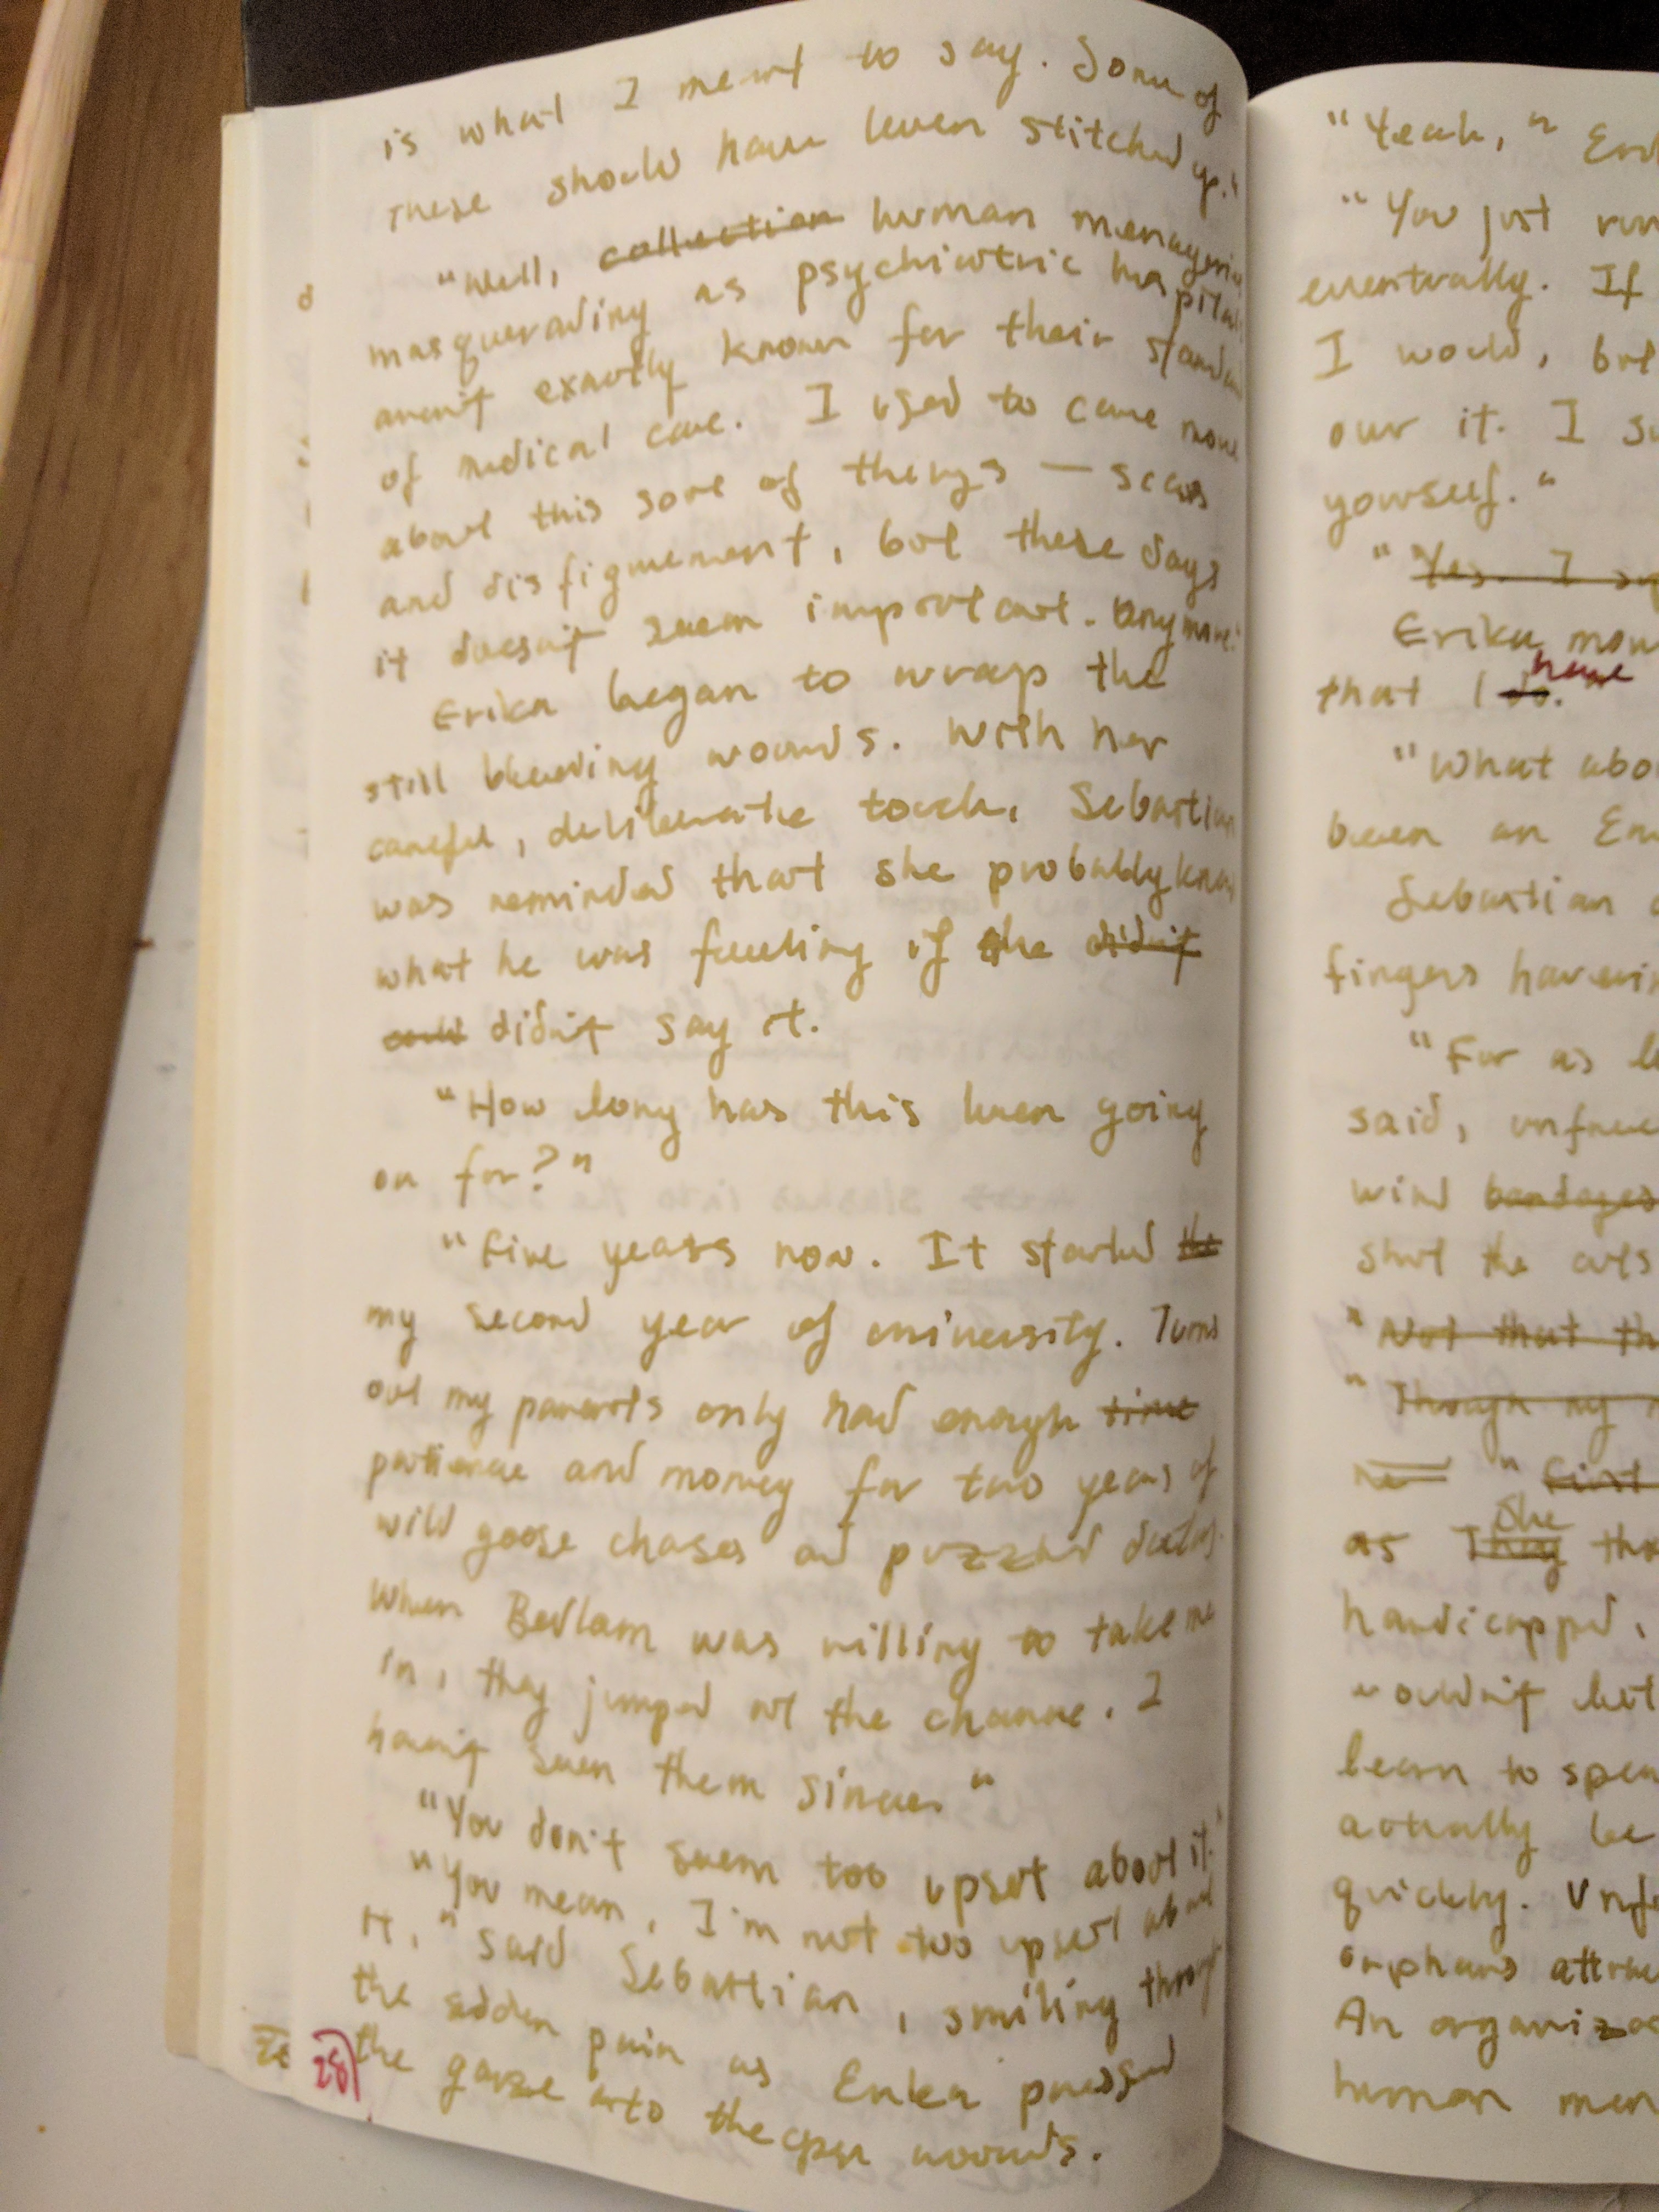 is what I meant to say. Some of
these should have been stitched up."
"Well, collection human menagerie
masquerading as psychiatric hospitals
aren't exactly known for their standard
of medical care. I used to care more
about this sort of things — scars
and disfigurement, but these days
it doesn't seem important. anymore."
Erika began to wrap the
still bleeding wounds. With her
careful, deliberate touch, Sebastian
was reminded that she probably knew
what he was feeling if she didn't
could didn't say it.
"How long has this been going
on for?"
"Five years now. It started the
my second year of university. Turns
out my parents only had enough time
patience and money for two years of
wild goose chases and puzzled doctors.
When Bedlam was willing to take me
in, they jumped at the chance. I
haven't seen them since."
"You don't seem too upset about it."
"You mean, I'm not too upset about
it," said Sebastian, smiling through
the sudden pain as Erika pressed
the gauze onto the open wounds.
28
"Yeah,"
"You just run
eventually. If
I would, but
our it. I
yourself."
"Yes. I
Erika
have
that I do."
"What
been an
Sebastian
fingers
"For as
said,
wind bandages
shut the cuts
"Not that
"Though my
"first
She
as They
handicapped,
wouldn't let
learn to
actually be
quickly.
orphans
An
human